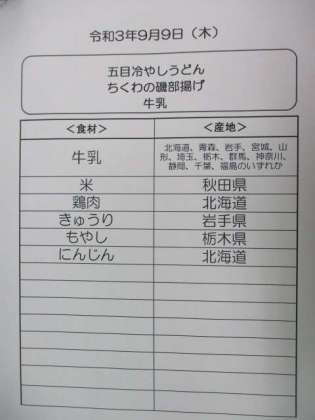 令和3年9月9日（木）
五目冷やしうどん
ちくわの磯部揚げ
牛乳
＜食材＞ ＜産地＞
牛乳 北海道、青森、岩手、宮城、山
形、埼玉、栃木、群馬、神奈川、
静岡、千葉、福島のいずれか
米 秋田県
鶏肉 北海道
きゅうり 岩手県
もやし 栃木県
にんじん 北海道